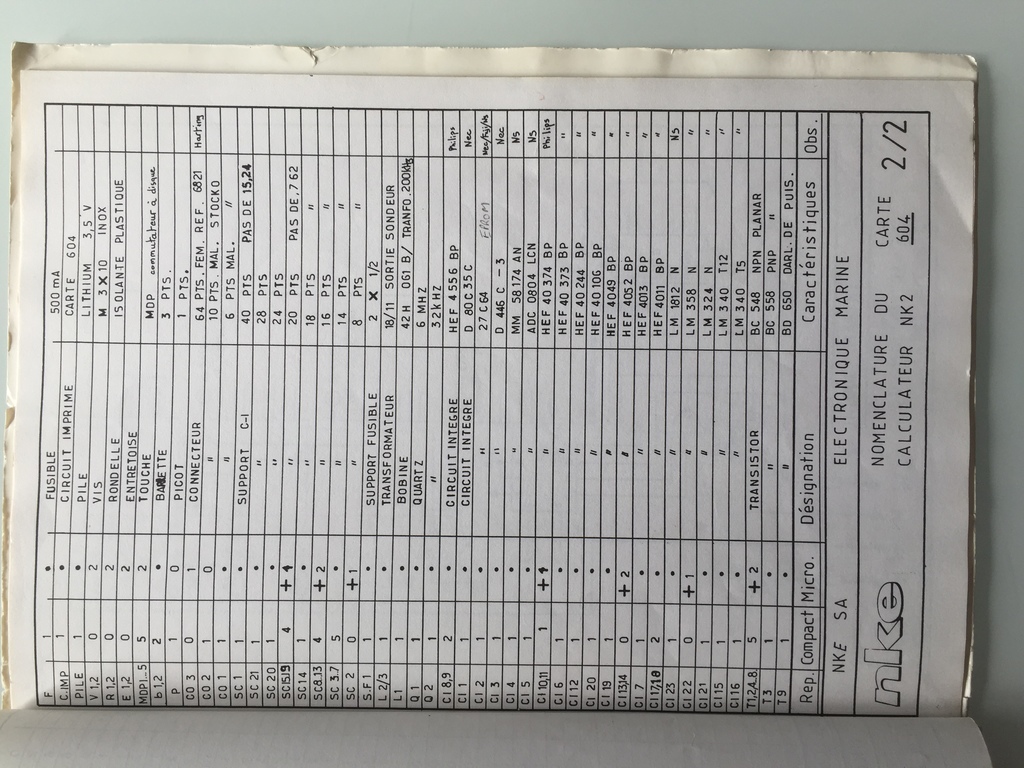 F 1 • FUSIBLE 500 mA
C.IMP 1 • CIRCUIT IMPRIME CARTE 604
PILE 1 • PILE LITHIUM 3,5 V
V 1,2 0 2 VIS M 3 X 10 INOX
R 1,2 0 2 RONDELLE ISOLANTE PLASTIQUE
E 1,2 0 2 ENTRETOISE
MDP1...5 5 2 TOUCHE MDP commutateur à disque
b 1,2 2 • BARETTE 3 PTS.
P 1 0 PICOT 1 PTS.
CO 3 0 1 CONNECTEUR 64 PTS. FEM. REF. 6821 Harting
CO 2 1 0 " 10 PTS. MAL. STOCKO
CO 1 1 • " 6 PTS MAL. "
SC 1 1 • SUPPORT C-I 40 PTS PAS DE 15,24
SC 21 1 • " 28 PTS
SC 20 1 • " 24 PTS
SC15,19 4 + 4 " 20 PTS PAS DE,7 62
SC14 1 • " 18 PTS "
SC8..13 4 + 2 " 16 PTS "
SC 3..7 5 • " 14 PTS "
SC 2 0 + 1 " 8 PTS "
S.F 1 1 • SUPPORT FUSIBLE 2 X 1/2
L 2/3 1 • TRANSFORMATEUR 18/11 SORTIE SONDEUR
L1 1 • BOBINE 42 H 061 B/ TRANFO.200kHz
Q 1 1 • QUARTZ 6 MHZ
Q 2 1 • " 32kHZ
CI 8,9 2 • CIRCUIT INTEGRE HEF 4556 BP Philips
CI 1 1 • CIRCUIT INTEGRE D 80C35C Nec
CI 2 1 • " 27C64 EPROM Nec/Fuji/Ns
CI 3 1 • " D 446 C - 3 Nec
CI 4 1 • " MM 58174 AN NS
CI 5 1 • " ADC 0804 LCN NS
CI 10,11 1 + 1 " HEF 40 374 BP Philips
CI 6 1 • " HEF 40 373 BP "
CI 12 1 • " HEF 40 244 BP "
CI 20 1 • " HEF 40 106 BP "
CI 19 1 • " HEF 4049 BP "
CI 13,14 0 + 2 " HEF 4052 BP "
CI 7 1 • " HEF 4013 BP "
CI 17,18 2 • " HEF 4011 BP "
CI 23 1 • " LM 1812 N NS
CI 22 0 + 1 " LM 358 N "
CI 21 1 • " LM 324 N "
CI 15 1 • " LM 340 T12 "
CI 16 1 • " LM 340 T5 "
T1,2,4..8. 5 + 2 TRANSISTOR BC 548 NPN PLANAR
T 3 1 • " BC 558 PNP "
T 9 1 • " BD 650 DARL. DE PUIS.
Rep. Compact Micro. Désignation Caractéristiques Obs.
NKE SA ELECTRONIQUE MARINE
nke NOMENCLATURE DU CARTE 2/2
CALCULATEUR NK2 604